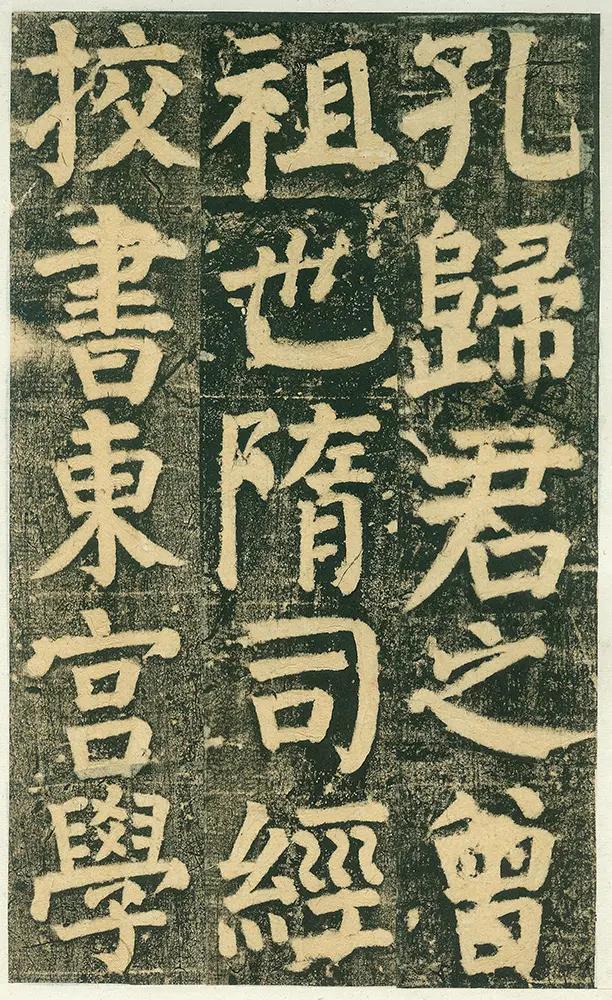 孔歸君之曾
祖世隋司經
挍書東宮學